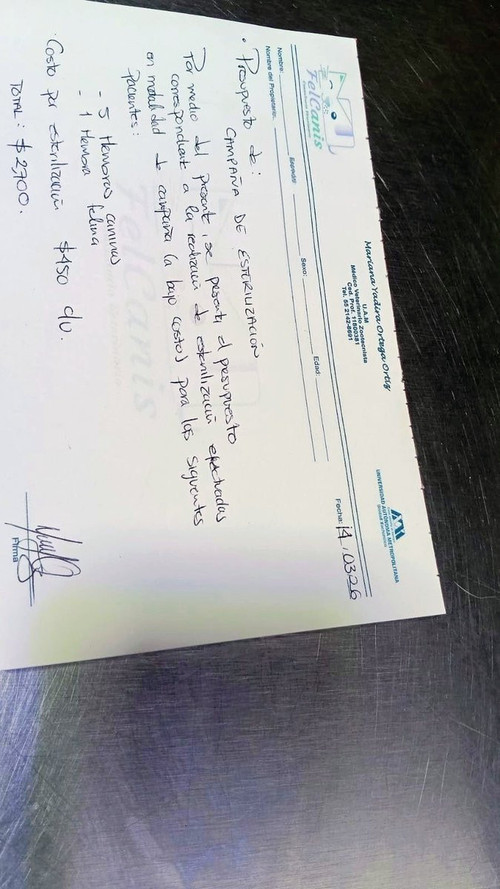 FelCanis
Mariana Yadira Ortega Ortiz
U.A.M
Médico Veterinario Zootecnista
Ced. Prof. 11600381
Tel. 55 2142-8691
UNIVERSIDAD AUTÓNOMA METROPOLITANA
Fecha: 14.03.26
Nombre: Especie: Sexo: Edad:
Nombre del Propietario:
· Presupuesto de:
CAMPAÑA DE ESTERILIZACIÓN
Por medio del presente, se presenta el presupuesto
correspondiente a la realización de esterilización efectuadas
en modalidad de campaña (a bajo costo) para los siguientes
pacientes:
- 5 Hembras caninas
- 1 Hembra felina
Costo por esterilización $450 c/u.
TOTAL: $2,700.
FelCanis
Firma